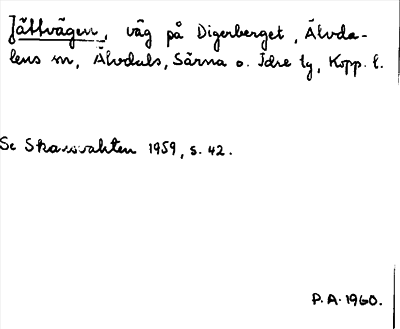 Jättvägen, väg på Digerberget, Älvda-
lens sn, Älvdals, Särna o. Idre tg, Kopp. l.
Se Skansvakten 1959, s. 42.
P.A. 1960.